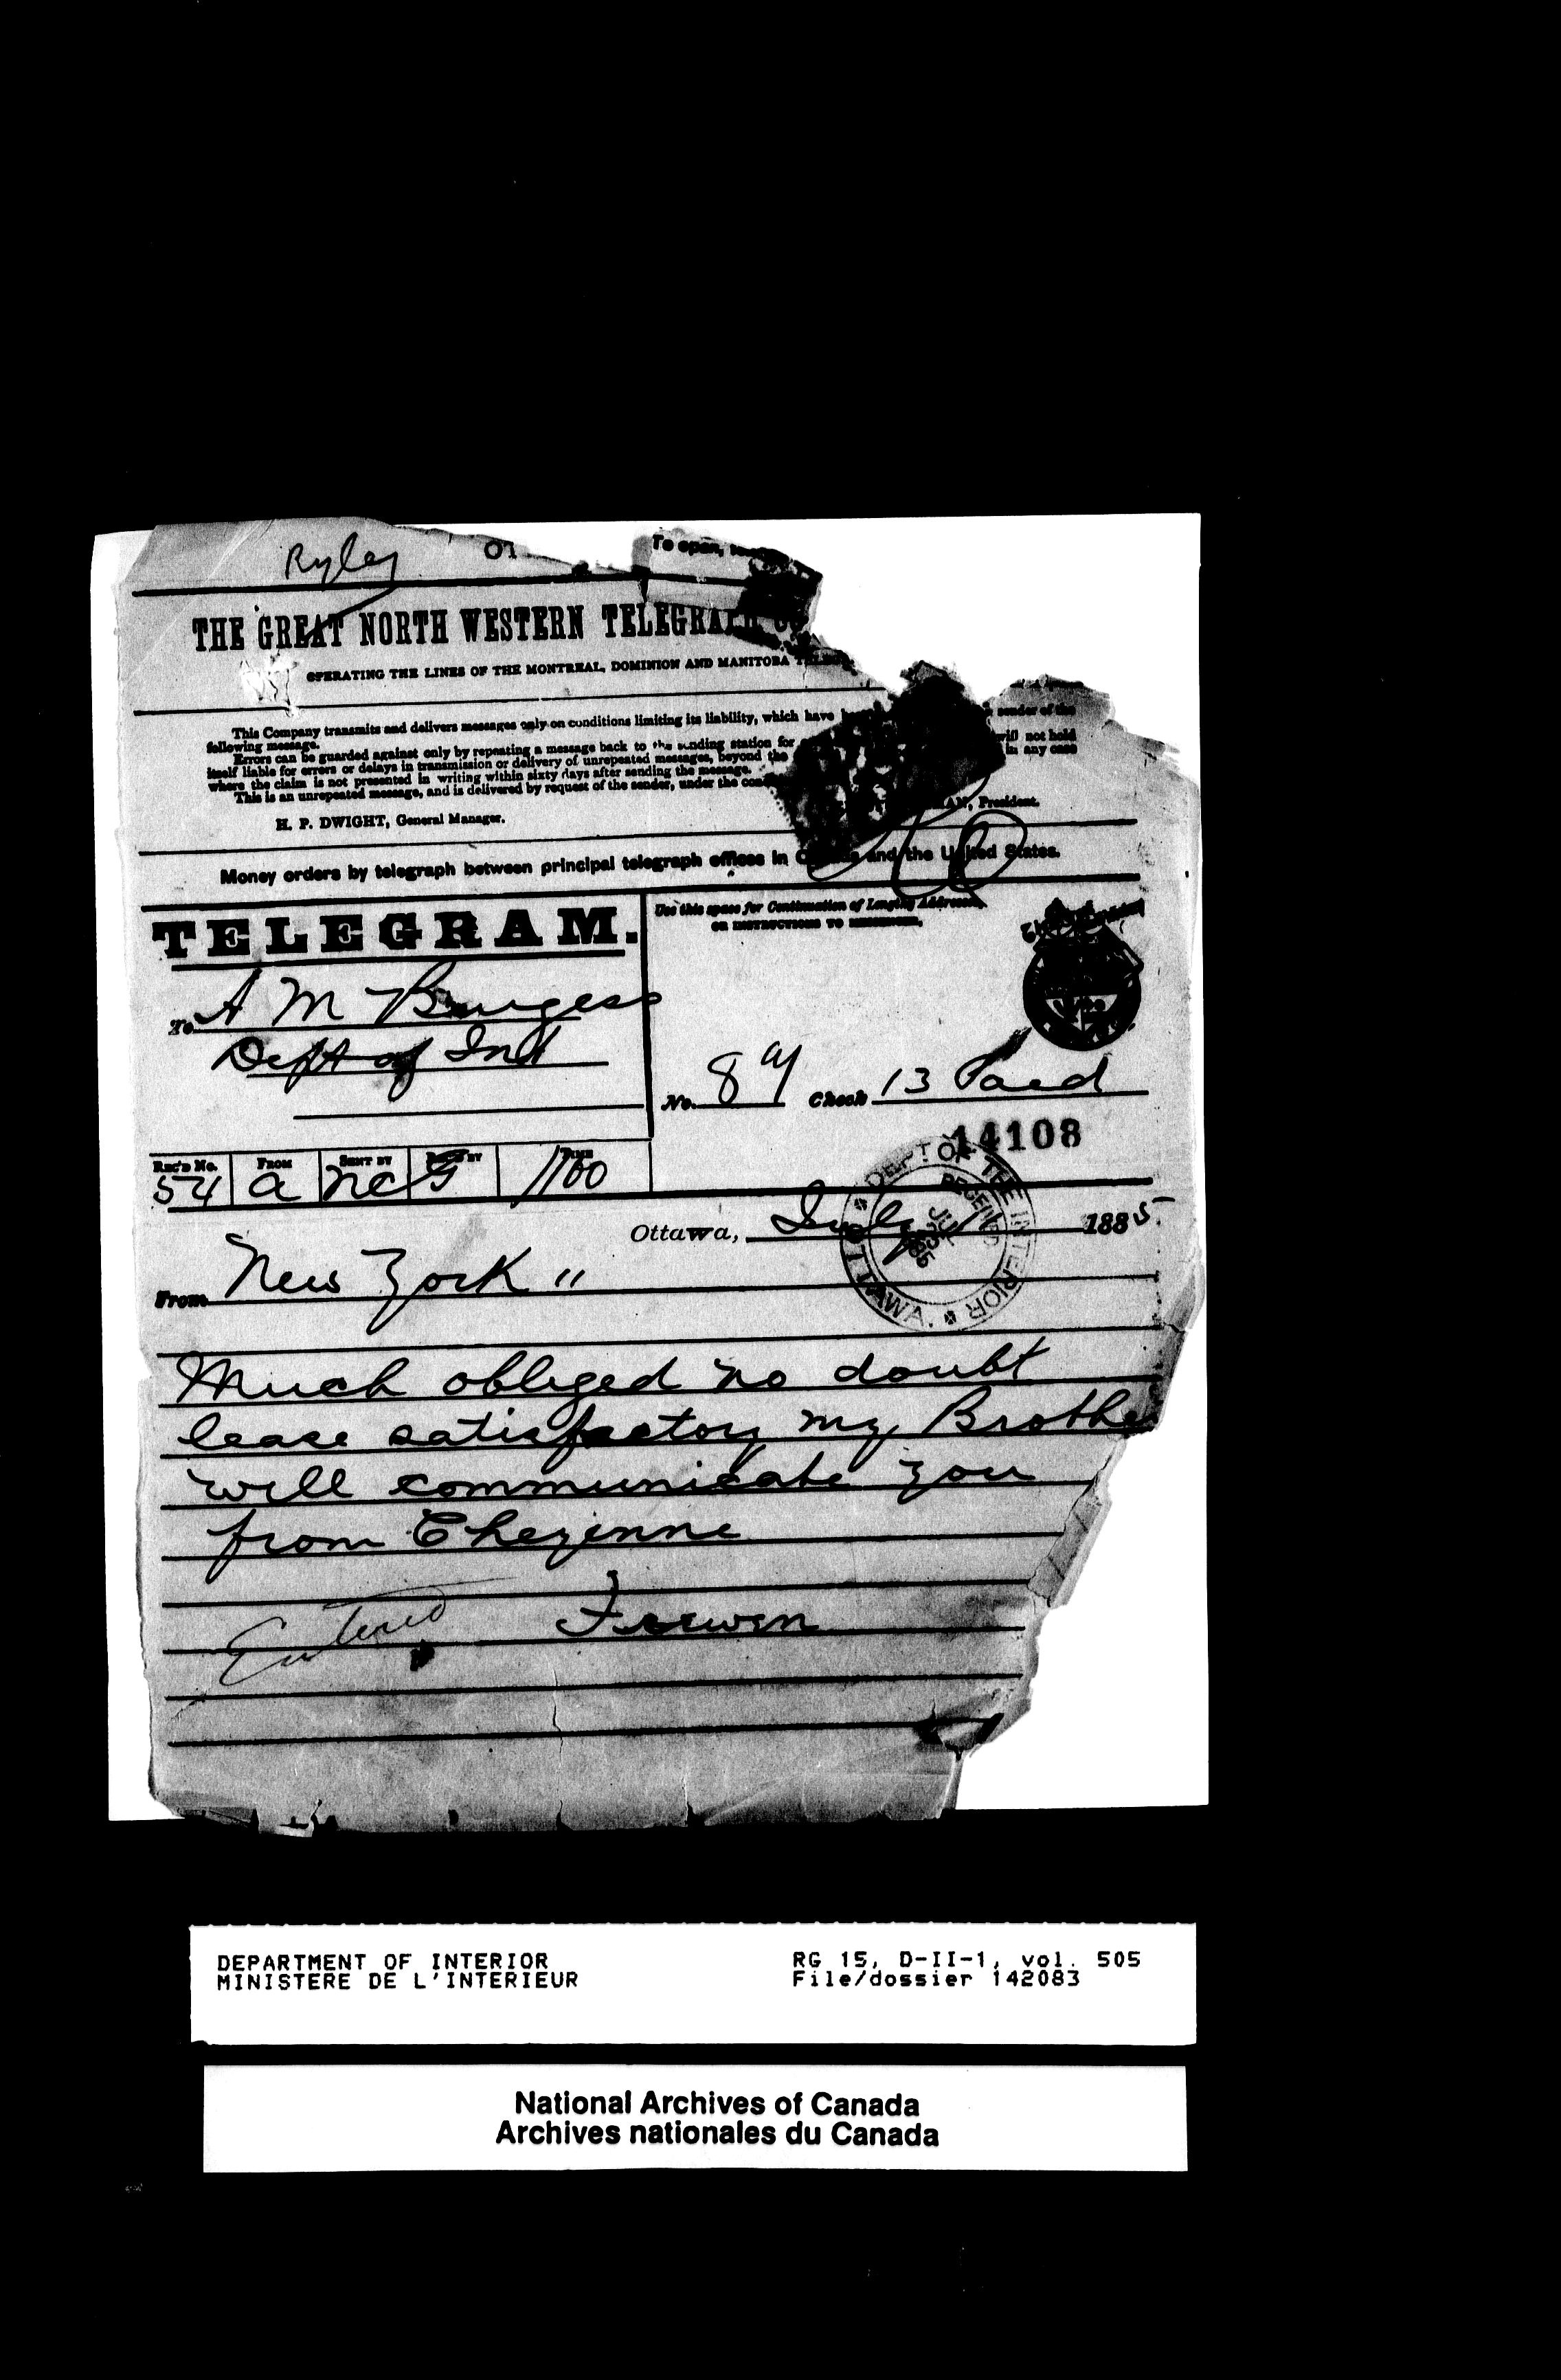 Ryley
To open,
THE GREAT NORTH WESTERN TELEGRAPH CO
OPERATING THE LINES OF THE MONTREAL, DOMINION AND MANITOBA
This Company transmits and delivers messages only on conditions limiting its liability, which have sender of the
following message.
Errors can be guarded against only by repeating a message back to the sending station for will not hold
itself liable for errors or delays in transmission or delivery of unrepeated messages, beyond the in any case
where the claim is not presented in writing within sixty days after sending the message.
This is an unrepeated message, and is delivered by request of the sender, under the
President.
H. P. DWIGHT, General Manager.
Money orders by telegraph between principal telegraph offices in and the United States.
TELEGRAM.
Use this space for Continuation of Lengthy Addresses,
OR INSTRUCTIONS TO
To A M Burgess
Dept of Int
No. 8 Check 13 Paid
14108
REC'D No. FROM SENT BY TIME
54 a nc G 1100
DEPT OF THE INTERIOR
RECEIVED
OTTAWA.
Ottawa, July 1 1885
From New York "
Much obliged no doubt
lease satisfactory my Brother
will communicate you
from Cheyenne
Frewen
Entered
DEPARTMENT OF INTERIOR RG 15, D-II-1, vol. 505
MINISTERE DE L'INTERIEUR File/dossier 142083
National Archives of Canada
Archives nationales du Canada